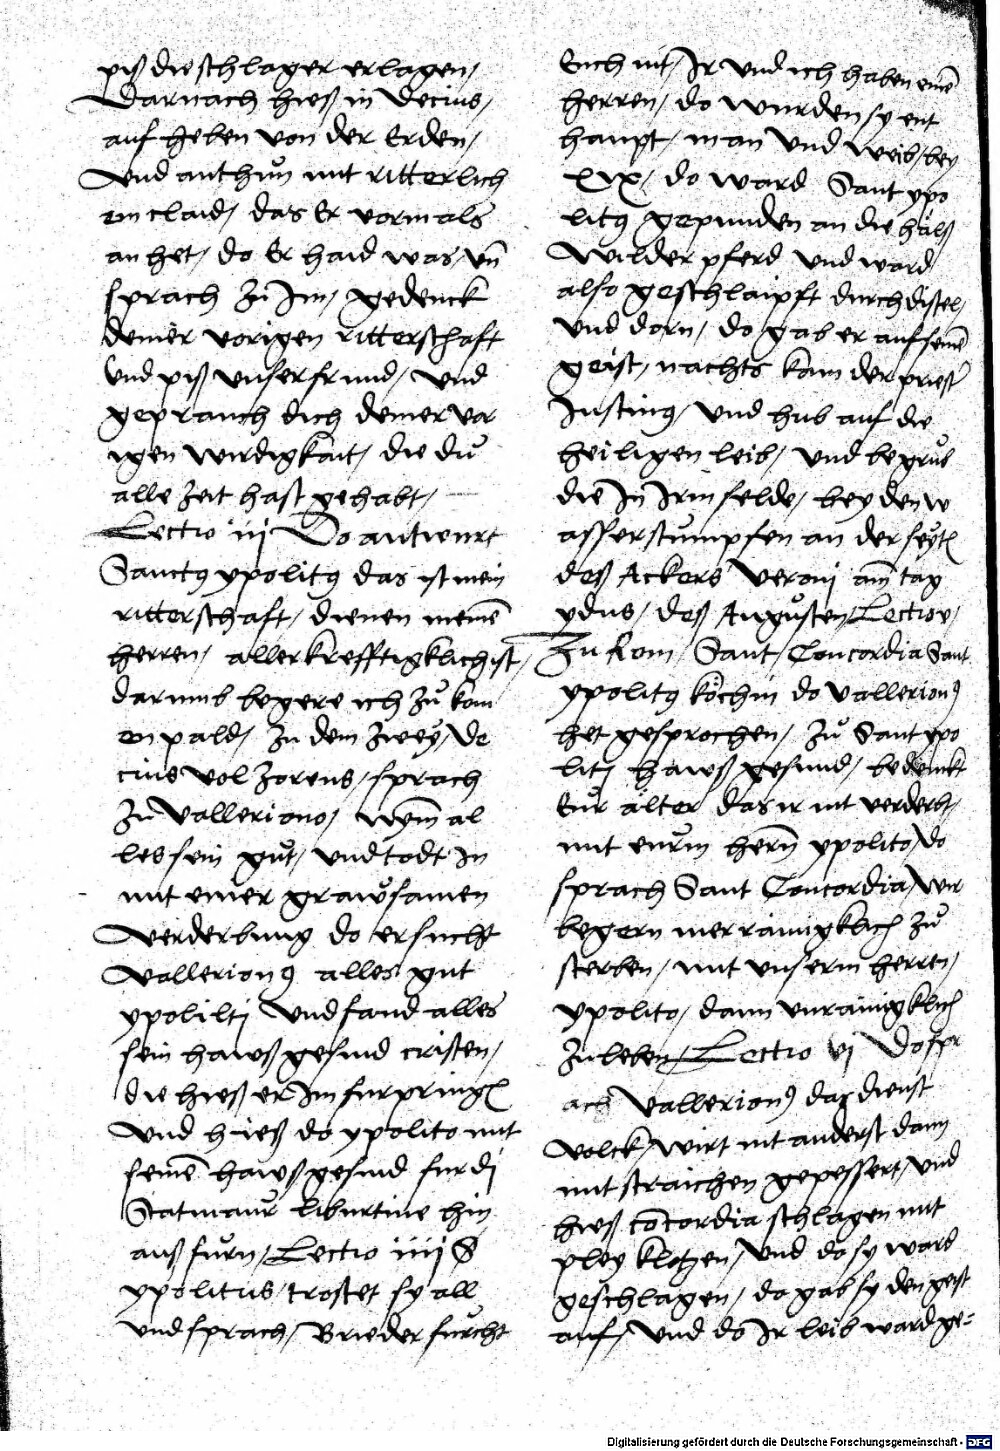 piß die schlager erlagen /
Darnach hieß in decius /
auf heben von der Erden /
Vnd anthůn mit ritterlich
em claid / das Er vormals
an het / do Er haid was / vn̄
sprach zů Im / gedenck
deiner vorigen ritterschaft
vnd piß vnser frund / vnd
geprauch dich deiner vor
igen wirdigkait / die dů
alle zeit hast gehabt /
Lectio iij Do antwurt
Sanctꝯ ypolitꝯ das ist mein
ritterschaft / dienen meinē
herren / aller krefftigklichist /
darumb begere ich zů kom
en pald / zu dem zwey / De
cius vol zorens / sprach
zů valleriano / nym̄ al
les sein gůt / vnd todt in
mit einer grawsamen
verderbung do ersucht
Vallerionꝯ alles gut
ypoliti vnd fand alles
sein hawßgesind cristen /
die hieß er Im furpringen
vnd hieß do ypolito mit
seinē hawßgesind fur di
Statmaůr tiburtine hin
auß fůrn / Lectio iiij S
ypolitus / trostet sy all
vnd sprach / Brieder fůrcht
Euch nit / Ir vnd ich haben einē
herren / do wurden sy ent
haupt / man vnd weib / bey
xix / do ward Sant ypo
litꝯ gepunden an die hälß
Wilder pferd vnd ward
also geschlaipft durch distel /
vnd dorn / do gab er auf seinē
geist / nachts kam der priest
Iustinꝯ / vnd hub auf die
heiligen leib / vnd begrůb
die In Irm felde / bey den w
asserstumpfen an der seyten
deß Ackers veroni am̄ tag
ydus / deß Augůsten / Lectio v /
Zu Rom / Sant / Concordia Sant
ypolitꝯ köchin do vallerionꝯ
het gesprochen / zů Sant ypo
liti hawßgesind / bedenckt
Eůr älter das ir nit verderbt /
mit eurm hern̄ ypolito / do
sprach Sant Concordia / wir
begern mer rainigklich zů
sterben / mit vnserm herren /
ypolito / dann vnrainigklich
zu leben / Lectio vj Do spr
ach vallerionꝯ das dienst
volck / wirt nit anderst dann
mit straichen gepessert / vnd
hieß concordia schlagen mit
pley klotzen / vnd do sy ward
geschlagen / do gab sy den geist
auf / vnd do Ir leib ward ge=
Digitalisierung gefördert durch die Deutsche Forschungsgemeinschaft - DFG